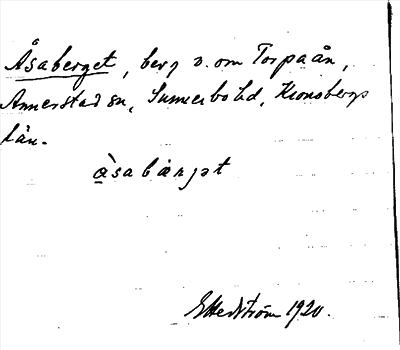 Åsaberget, berg v. om Torpaån,
Annerstad sn, Sunnerbo hd, Kronobergs
län.
åsabærjət
1920.